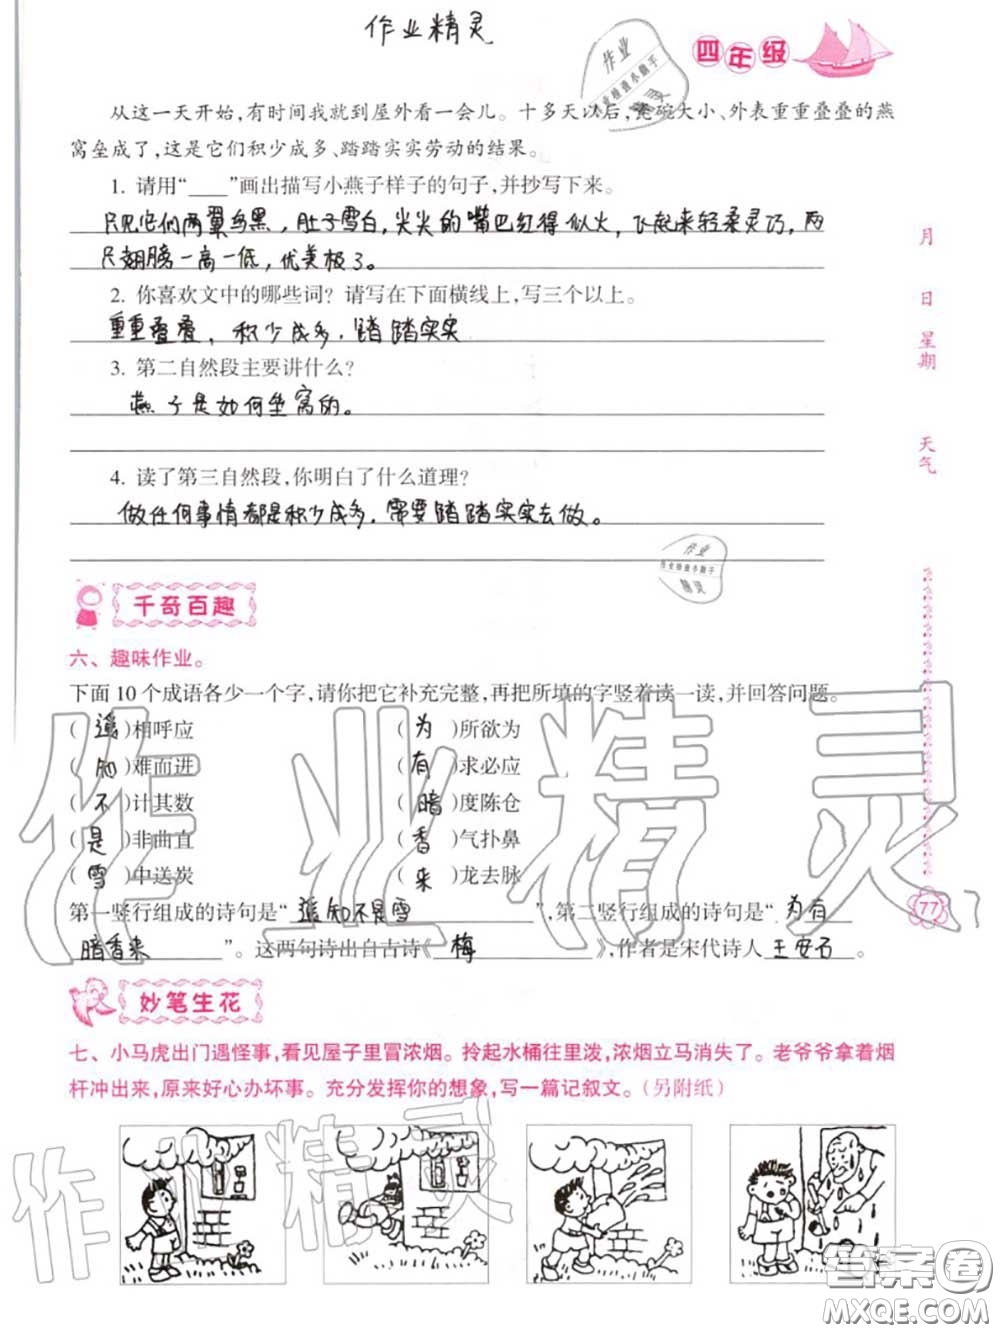 作业精灵
四年级
从这一天开始,有时间我就到屋外看一会儿。十多天以后,瓷碗大小、外表重重叠叠的燕
窝垒成了,这是它们积少成多、踏踏实实劳动的结果。
1. 请用“____”画出描写小燕子样子的句子,并抄写下来。
只见它们两翼乌黑,肚子雪白,尖尖的嘴巴红得似火,飞起来轻柔灵巧,两
只翅膀一高一低,优美极了。
2. 你喜欢文中的哪些词?请写在下面横线上,写三个以上。
重重叠叠,积少成多,踏踏实实
3. 第二自然段主要讲什么?
燕子是如何垒窝的。
4. 读了第三自然段,你明白了什么道理?
做任何事情都是积少成多,需要踏踏实实去做。
月
日
星期
天气
作业
精灵
千奇百趣
六、趣味作业。
下面10个成语各少一个字,请你把它补充完整,再把所填的字竖着读一读,并回答问题。
(遥)相呼应 (为)所欲为
(知)难而进 (有)求必应
(不)计其数 (暗)度陈仓
(是)非曲直 (香)气扑鼻
(雪)中送炭 (来)龙去脉
第一竖行组成的诗句是“遥知不是雪”,第二竖行组成的诗句是“为有
暗香来”。这两句诗出自古诗《梅》,作者是宋代诗人王安石。
77
妙笔生花
七、小马虎出门遇怪事,看见屋子里冒浓烟。拎起水桶往里泼,浓烟立马消失了。老爷爷拿着烟
杆冲出来,原来好心办坏事。充分发挥你的想象,写一篇记叙文。(另附纸)
作业精灵
作业精灵
答案圈
MXQE.COM